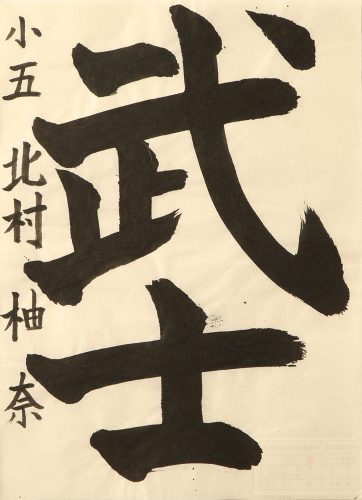 武士
小五 北村 柚奈